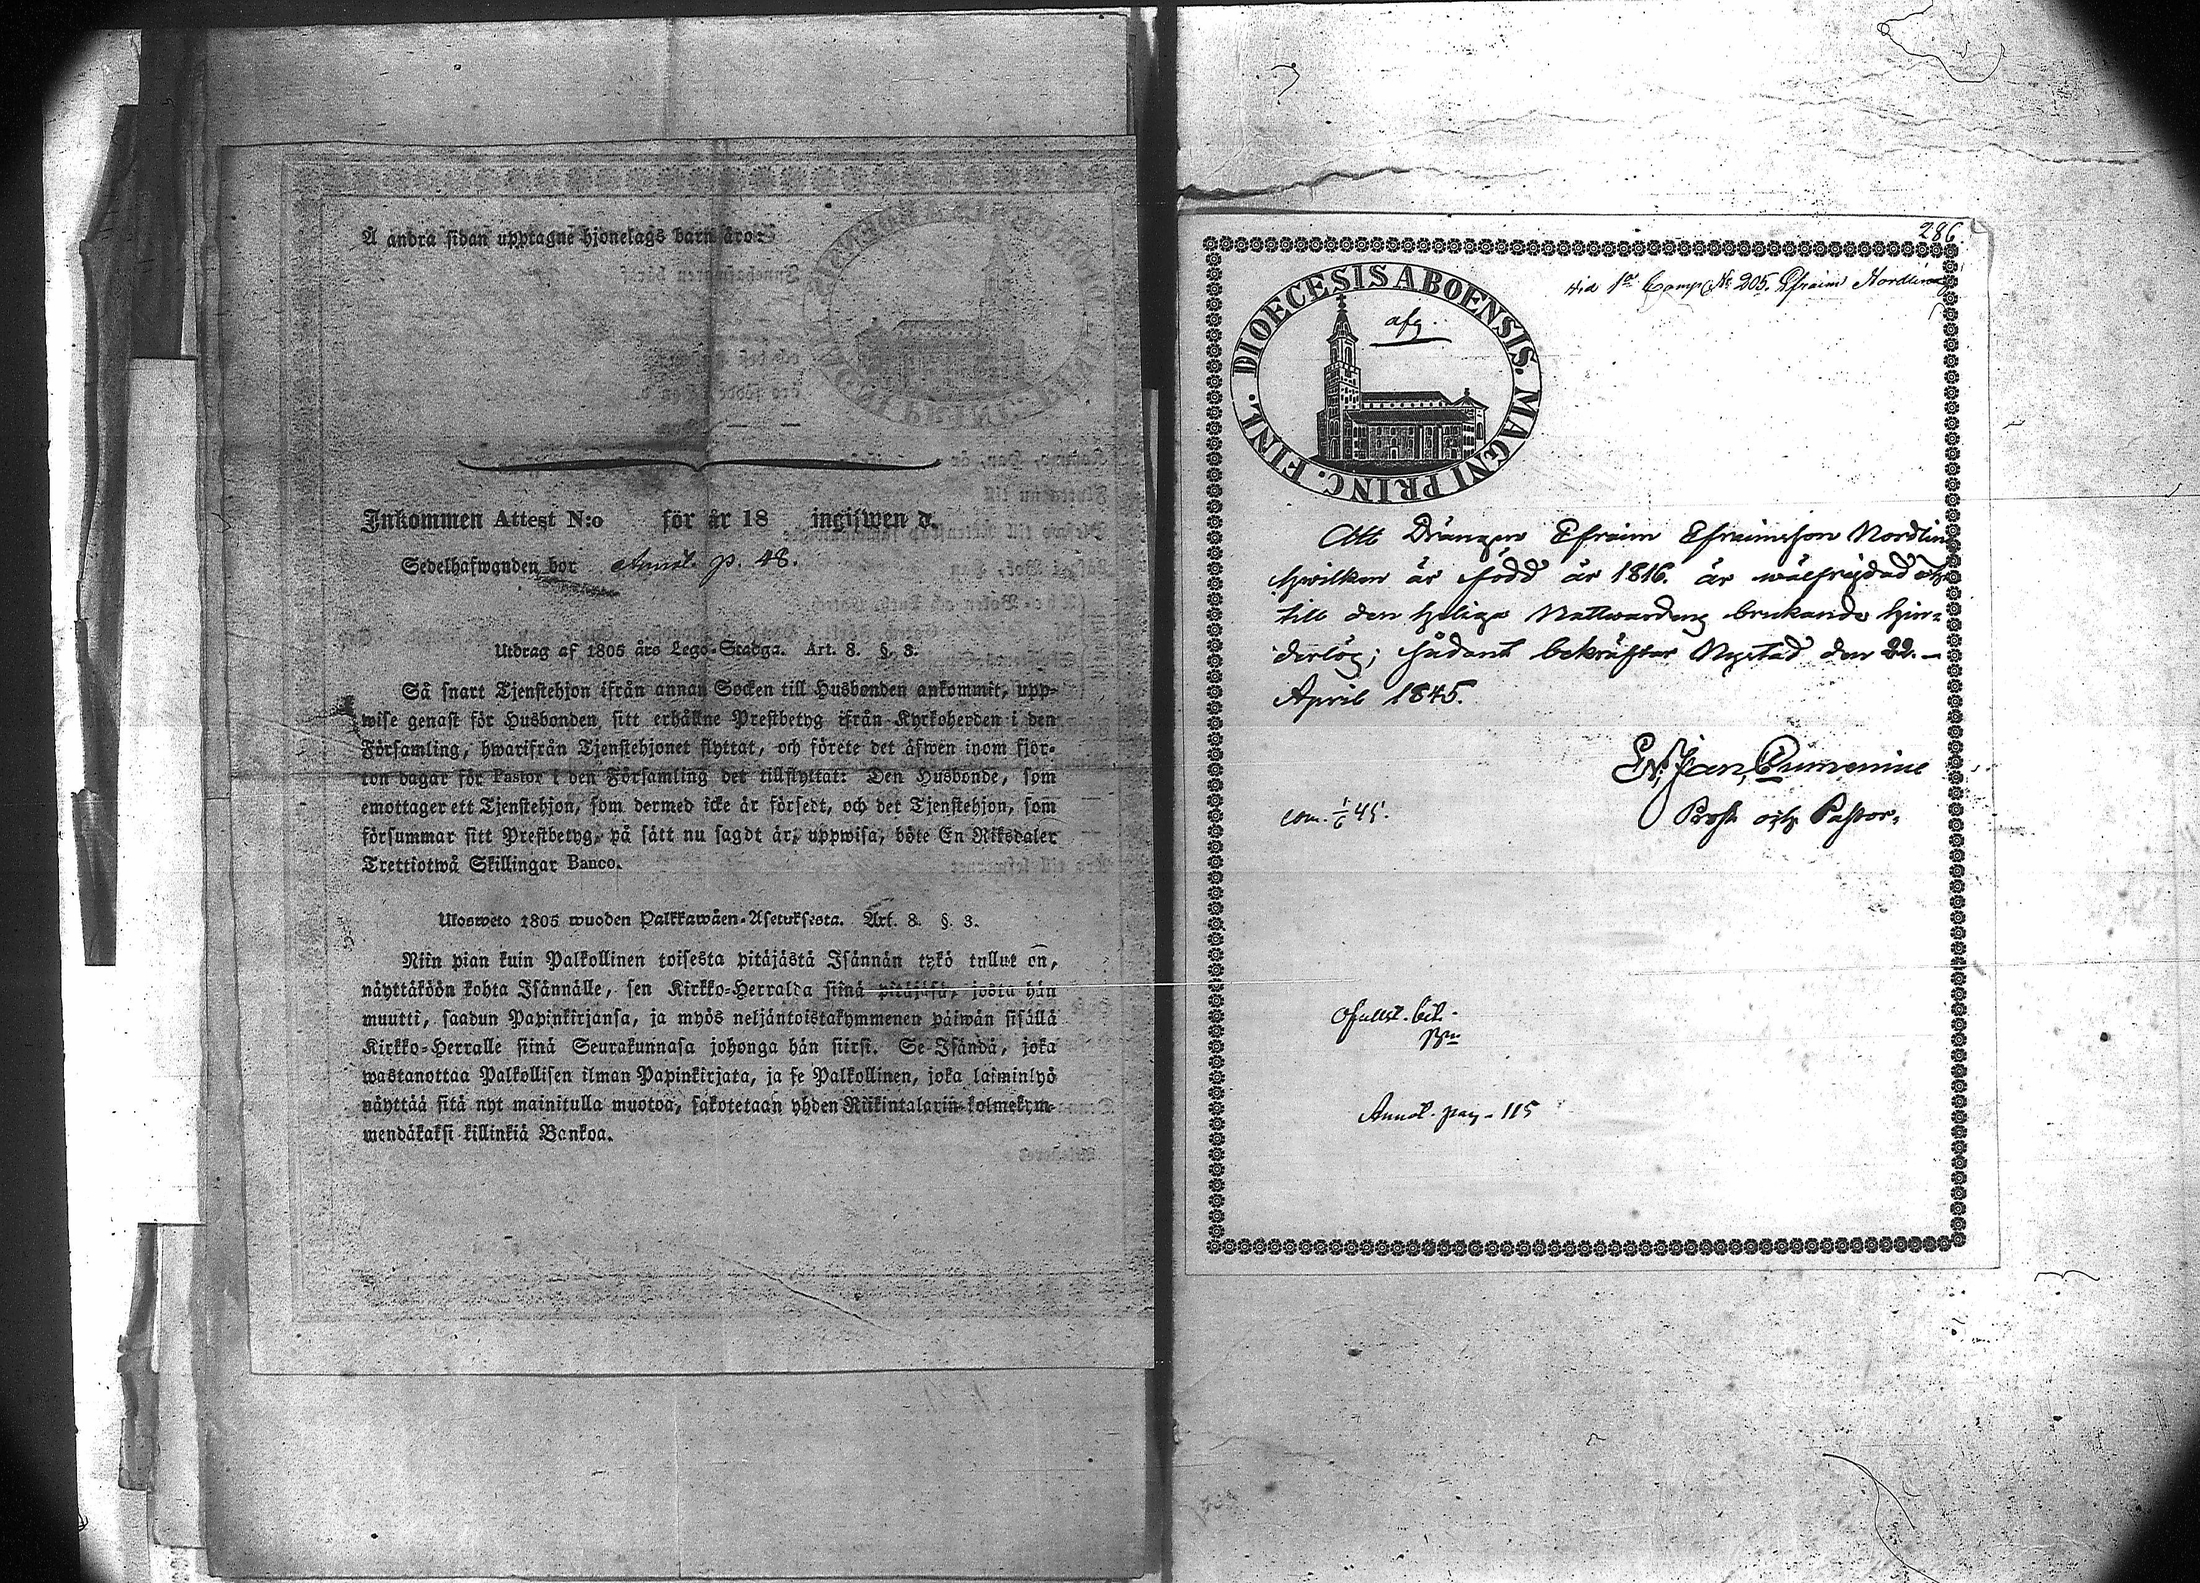 Å andra sidan upptagne hjonelags barn äro:
Inkommen Attest N:o för år 18 ingifwen d.
Sedelhafwanden bor Annot. p. 48.
Utdrag af 1805 års Lego-Stadga. Art. 8. §. 3.
Så snart Tjenstehjon ifrån annan Socken till Husbonden ankommit, upp-
wise genast för Husbonden sitt erhållne Prestbetyg ifrån Kyrkoherden i den
Församling, hwarifrån Tjenstehjonet flyttat, och förete det äfwen inom fjor-
ton dagar för Pastor i den Församling det tillflyttat: Den Husbonde, som
emottager ett Tjenstehjon, som dermed icke är försedt, och det Tjenstehjon, som
försummar sitt Prestbetyg, på sätt nu sagdt är, uppwisa, böte En Riksdaler
Trettiotwå Skillingar Banco.
Ulosweto 1805 wuoden Palkkawäen-Asetuksesta. Art. 8. §. 3.
Niin pian kuin Palkollinen toisesta pitäjästä Isännän tykö tullut on,
näyttäköön kohta Isännälle, sen Kirkko-Herralda siinä pitäjäsä, josta hän
muutti, saadun Papinkirjansa, ja myös neljäntoistakymmenen päiwän sisällä
Kirkko-Herralle siinä Seurakunnasa johonga hän siirsi. Se Isändä, joka
wastanottaa Palkollisen ilman Papinkirjata, ja se Palkollinen, joka laiminlyö
näyttää sitä nyt mainitulla muotoa, sakotetaan yhden Riikintalarin kolmekym-
mendäkaksi killinkiä Bankoa.
286.
1sta Comp. No 205. Efraim Nordling
DIOECESIS ABOENSIS. MAGNI PRINC. FINL.
afg.
Att Drängen Efraim Efraimsson Nordling
hwilken är född år 1816. är wälfrejdad och
till den heliga Nattwardens brukande hin-
derlös; sådant bekräftar Nystad den 22.-
April 1845.
Jan
Prost och Pastor.
com. 1/6 45.
Annot. pag. 115